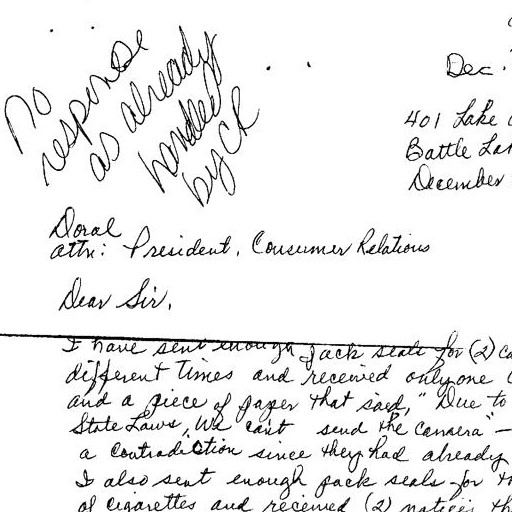 No
response
as already
handled
by CR
Dec.
401 Lake
Battle Lak
December
Doral
attn: President, Consumer Relations
Dear Sir,
I have sent enough pack seals for (2) ca
different times and received only one
and a piece of paper that said, "Due to
State Laws, We can't send the camera" —
a contradiction since they had already
I also sent enough pack seals for th
of cigarettes and received (2) notices th